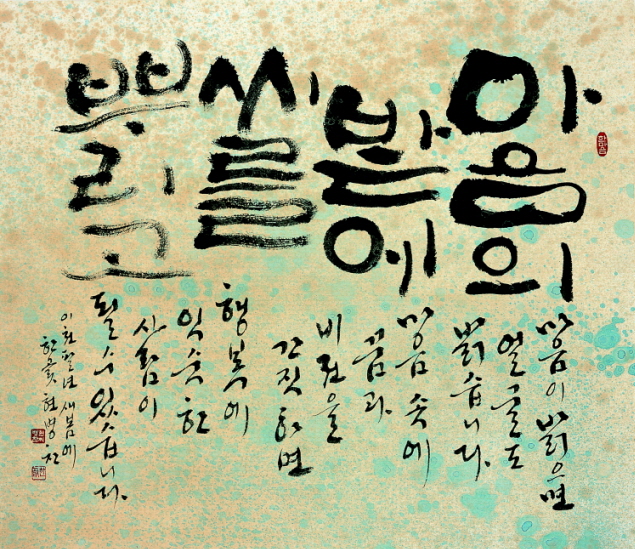 마음의
밭에
씨를
뿌리고
마음이 밝으면
얼굴도
밝습니다.
마음 속에
꿈과
비전을
간직하면
행복에
익숙한
사람이
될 수 있습니다.
이천칠년 새봄에
한곬 현병찬